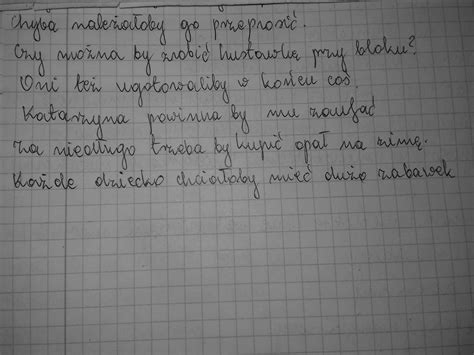 Chyba należałoby go przeprosić.
Czy można by zrobić huśtawkę przy bloku?
Oni też ugotowaliby w końcu coś.
Katarzyna powinna by mu zaufać
Za niedługo trzeba by kupić opał na zimę.
Każde dziecko chciałoby mieć dużo zabawek